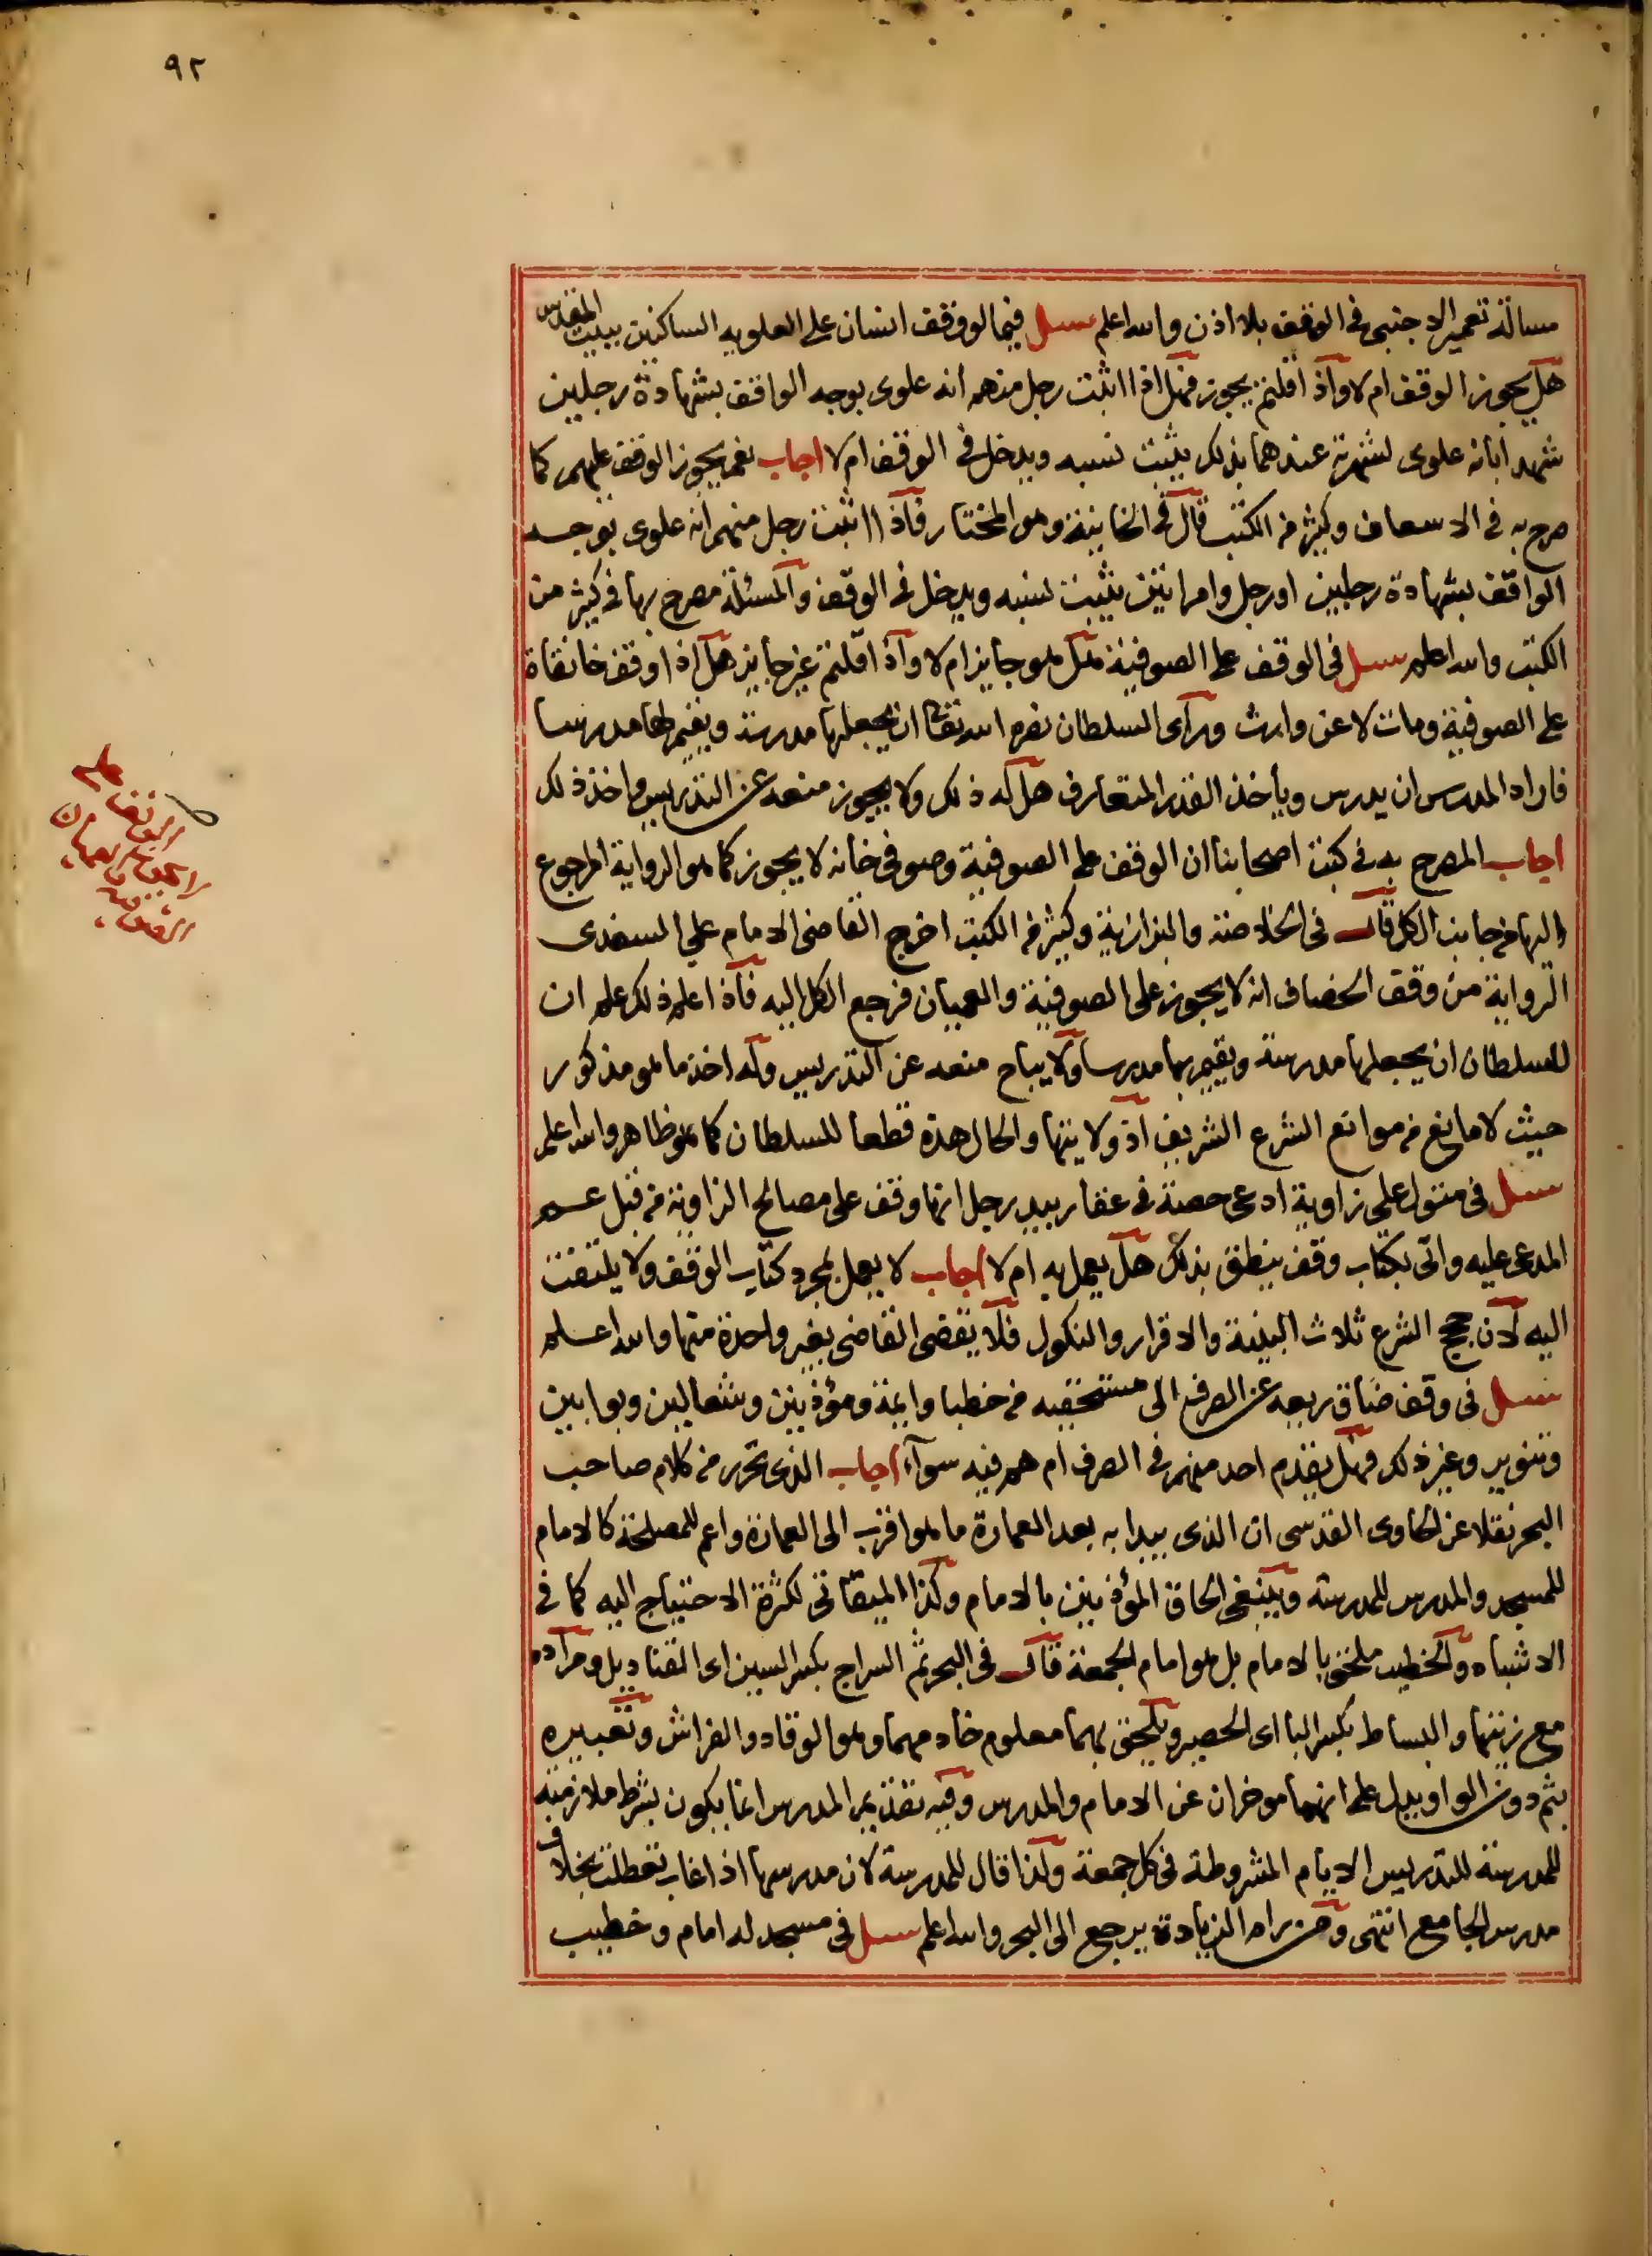 ٩٢
مسالة تعمير الاجنبى فى الوقف بلا اذن والله اعلم سئل فيما لو وقف انسان على العلويه الساكنين ببيت المقدس
هل يجوز الوقف ام لا واذا قلتم يجوز فهل اذا اثبت رجل منهم انه علوى بوجه الواقف بشهادة رجلين
شهدا بانه علوى لشهرته عندهما بذلك يثبت نسبه ويدخل فى الوقف ام لا اجاب نعم يجوز الوقف عليهم كما
صرح به فى الاسعاف وكثير من الكتب قال فى الخانية وهو المختار فاذا اثبت رجل منهم انه علوى بوجه
الواقف بشهادة رجلين او رجل وامراتين يثبت نسبه ويدخل فى الوقف والمسئلة مصرح بها فى كثير من
الكتب والله اعلم سئل فى الوقف على الصوفية هل هو جايز ام لا واذا قلتم غير جايز هل اذا وقف خانقاة
على الصوفية ومات لا عن وارث وراى السلطان نصره الله تعالى ان يجعلها مدرسة ويقيم لها مدرسا
فاراد المدرس ان يدرس وياخذ القدر المتعارف هل له ذلك ولا يجوز منعه عن التدريس واخذ ذلك
اجاب المصرح به فى كتب اصحابنا ان الوقف على الصوفية وصوفى خانه لا يجوز كما هو الرواية المرجوع
اليها من جانب الكل قال فى الخلاصة والبزازية وكثير من الكتب اخرج القاضى الامام على السغدى
الرواية من وقف الخصاف انه لا يجوز على الصوفية والعميان فرجع الكل اليه فاذا علم ذلك علم ان
للسلطان ان يجعلها مدرسة ويقيم بها مدرسا ولا يباح منعه عن التدريس وله اخذ ما هو مذكور
حيث لا مانع من موانع الشرع الشريف اذ ولايتها والحال هذه قطعا للسلطان كما هو ظاهر والله اعلم
سئل فى متول على زاوية ادعى حصة فى عقار بيد رجل انها وقف على مصالح الزاوية من قبل عم
المدعى عليه واتى بكتاب وقف ينطق بذلك هل يعمل به ام لا اجاب لا يعمل بمجرد كتاب الوقف ولا يلتفت
اليه لان حجج الشرع ثلاث البينة والاقرار والنكول فلا يقضى القاضى بغير واحدة منها والله اعلم
سئل فى وقف ضاق ريعه عن الصرف الى مستحقيه من خطبا وايمة ومؤذنين وشعالين وبوابين
وتنوير وغير ذلك فهل يقدم احد منهم فى الصرف ام هم فيه سوآء اجاب الذى تحرر من كلام صاحب
البحر نقلا عن الحاوى القدسى ان الذى يبدا به بعد العمارة ما هو اقرب الى العمارة واعم للمصلحة كالامام
للمسجد والمدرس للمدرسة وينبغى الحاق المؤذنين بالامام وكذا الميقاتى لكثرة الاحتياج اليه كما فى
الاشباه والخطيب ملحق بالامام بل هو امام الجمعة قال فى البحر ثم السراج بكسر السين اى القناديل ومراده
مع زيتها والبساط بكسر البا اى الحصير ويلحق بهما معلوم خادمهما وهو الوقاد والفراش وتعبيره
بثم دون الواو يدل على انهما موخران عن الامام والمدرس وفيه تقديم المدرس انما يكون بشرط ملازمته
للمدرسة للتدريس الايام المشروطة فى كل جمعة ولذا قال للمدرسة لان مدرسها اذا غاب تعطلت بخلاف
مدرس الجامع انتهى ومن رام الزيادة يرجع الى البحر والله اعلم سئل فى مسجد له امام وخطيب
الوقف على